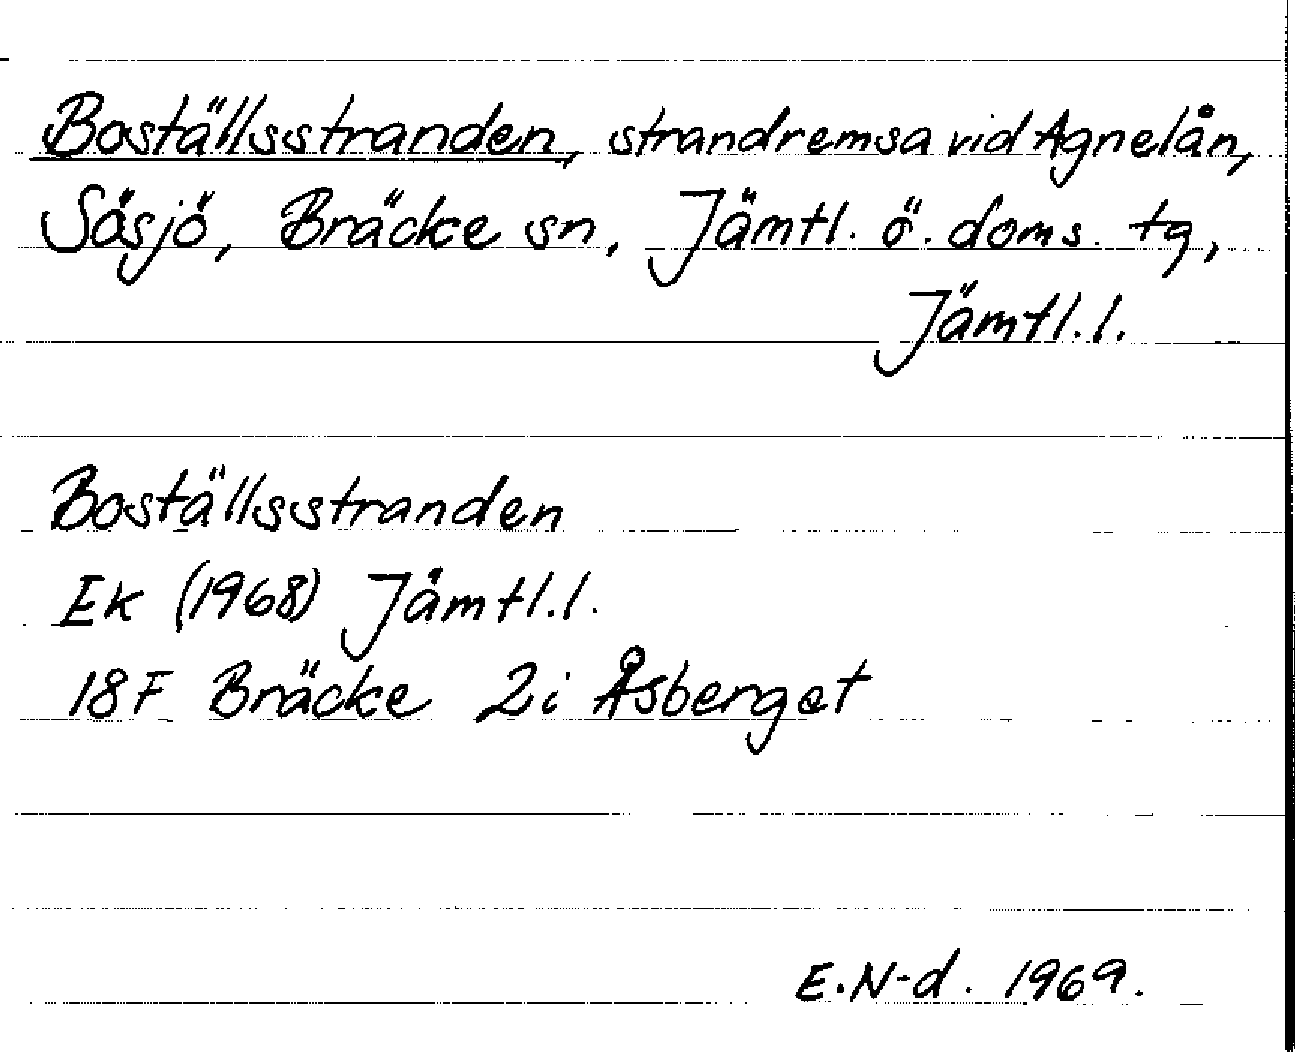 Boställsstranden, strandremsa vid Agnelån,
Sösjö, Bräcke sn, Jämtl. ö. doms. tg,
Jämtl. l.
Boställsstranden
Ek (1968) Jämtl. l.
18F Bräcke 2i Åsberget
E.N-d. 1969.